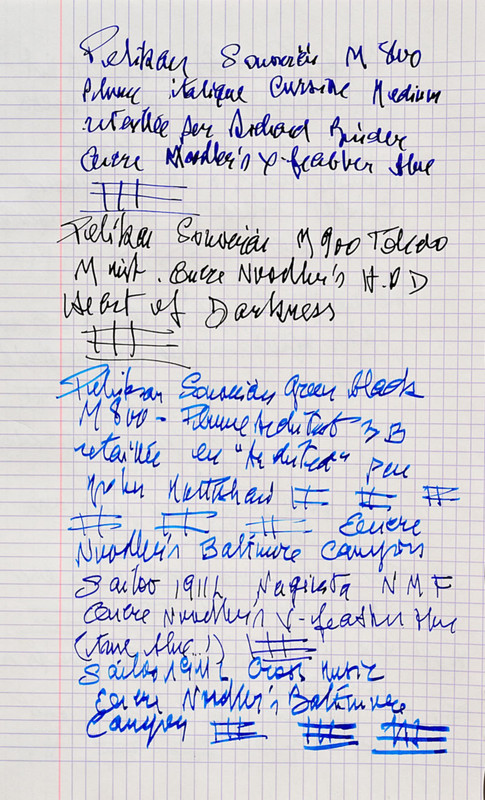 Pelikan Souverän M 800
Plume italique Cursive Medium
retaillée par Richard Binder
Encre Noodler's X-feather blue
Pelikan Souverän M 900 Toledo
M . Encre Noodler's H.O D
Heart of Darkness
Pelikan Souverän Green black
M 800 - Plume Architect 3B
retaillée en "Architect" par
John Mottishaw
Encre
Noodler's Baltimore Canyon
Sailor 1911L Naginata NMF
Encre Noodler's X-feather blue
(true blue...!)
Sailor 1911L Cross Music
Encre Noodler's Baltimore
Canyon